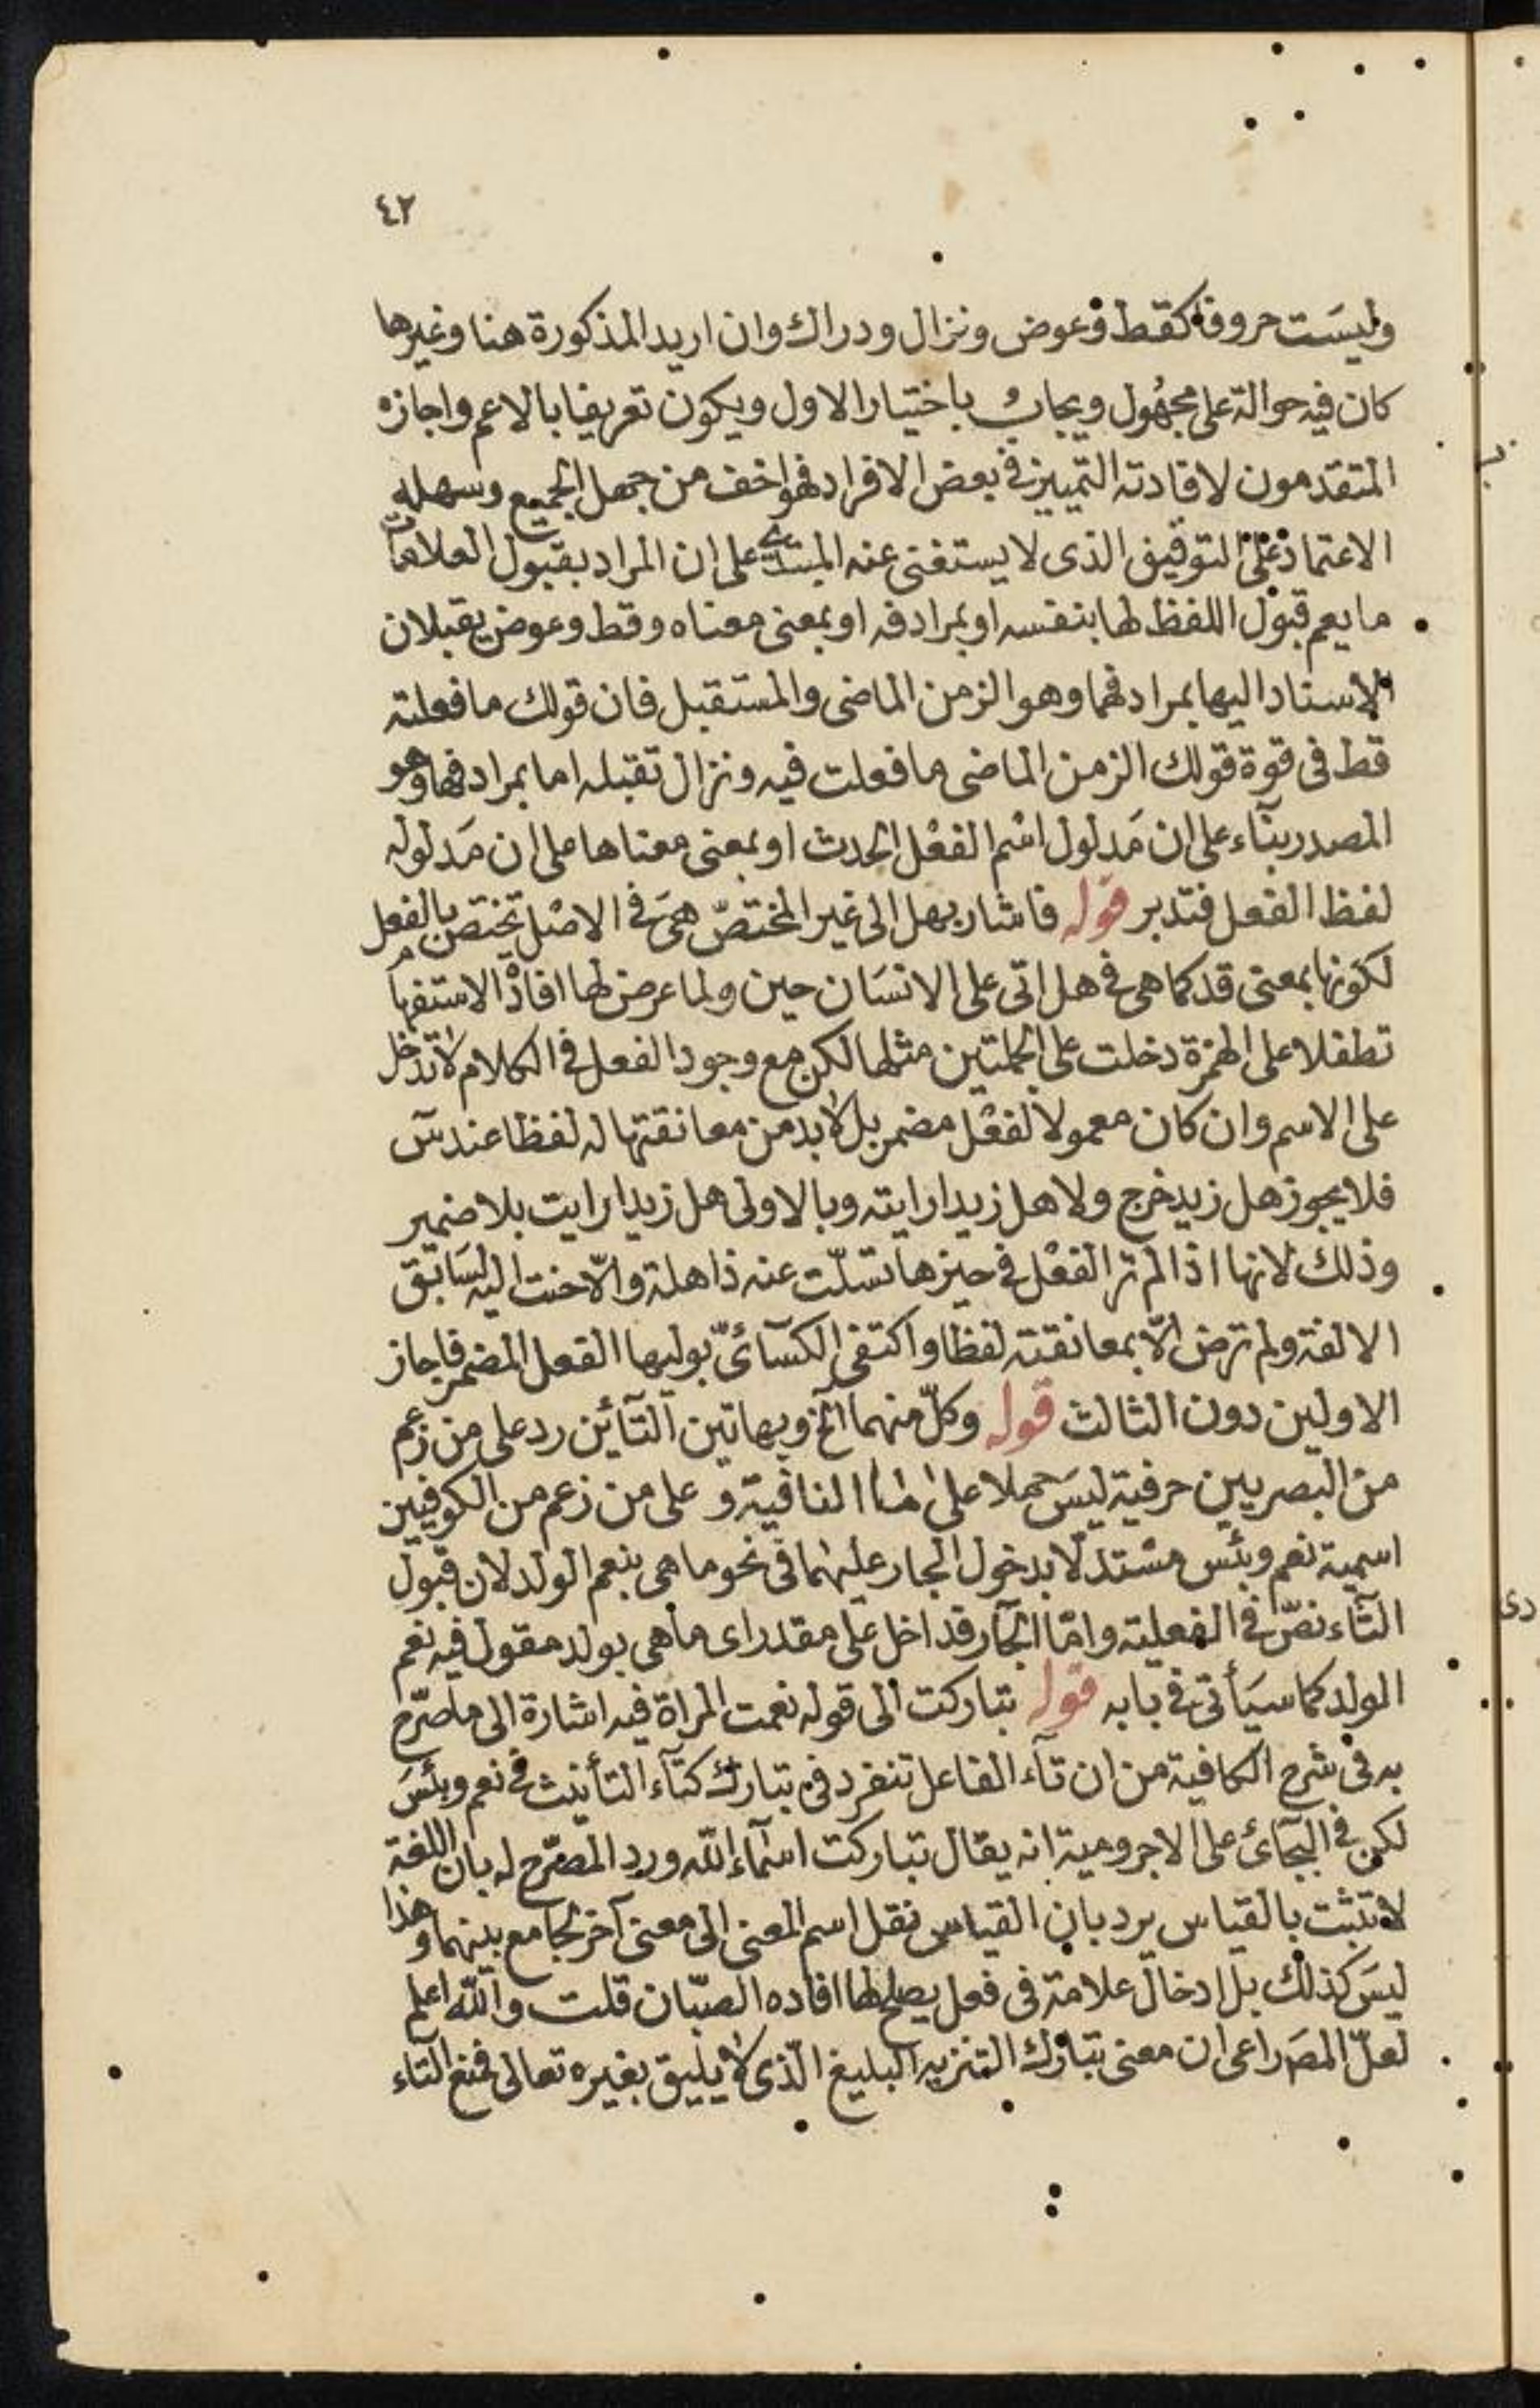 ٤٢
وليست حروفا كقط وعوض ونزال ودراك وان اريد المذكورة هنا وغيرها
كان فيه حوالة على مجهول ويجاب باختيار الاول ويكون تعريفا بالاعم واجازه
المتقدمون لافادته التمييز في بعض الافراد فهو اخف من جهل الجميع وسهله
الاعتماد على التوقيف الذى لا يستغنى عنه المبتدى على ان المراد بقبول العلامات
ما يعم قبول اللفظ لها بنفسه او بمرادفه او بمعنى معناه وقط وعوض يقبلان
الاسناد اليها بمرادفهما وهو الزمن الماضى والمستقبل فان قولك ما فعلته
قط فى قوة قولك الزمن الماضى ما فعلت فيه ونزال تقبله اما بمرادفها وهو
المصدر بنآء على ان مَدلول اسْم الفعْل الحدث او بمعنى معناها على ان مَدلوله
لفظ الفعل فتدبر قوله فاشار بهل الى غير المختصّ هىَ في الاصْل تختص بالفعل
لكونها بمعنى قد كما هى في هل اتى على الانسَان حين ولما عرض لها افادة الاستفهام
تطفلا على الهمزة دخلت على الجملتين مثلها لكن مع وجود الفعل في الكلام لا تدخل
على الاسم وان كان معمولا لفعْل مضمر بل لابد من معانقتها له لفظا عند سٓ
فلا يجوز هل زيد خرج ولا هل زيدا رايته وبالاولى هل زيدا رايت بلا ضمير
وذلك لانها اذا لم تر الفعْل في حيزها تسلّت عنه ذاهلة والّا حنت اليه لسَابق
الالفة ولم ترض الّا بمعانقته لفظا واكتفى الكسآئىّ بوليها الفعل المضمر فاجاز
الاولين دون الثالث قوله وكلّ منهما الخ وبهاتين التآئين رد على من زعم
من البصريين حرفية ليسَ حملا على ما النافية و على من زعم من الكوفيين
اسمية نعم وبئس مسْتدلّا بدخول الجار عليهما فى نحو ما هى بنعم الولد لان قبول
التّاء نصّ في الفعلية وامّا الجآر فداخل على مقدر اى ما هى بولد مقول فيه نعم
الولد كما سيَأتى في بابه قوله تباركت الى قوله نعمت المراة فيه اشارة الى ما صرّح
به فى شرح الكافية من ان تآء الفاعل تنفرد فى تبارك كتآء التأنيث في نعم وبئسَ
لكن في البجآئ على الاجرومية انه يقال تباركت اسمآء اللّه ورد المصرّح له بان اللغة
لا تثبت بالقياس يرد بان القياس نقل اسم المعنى الى معنى آخر لجامع بينهما وهذا
ليسَ كذلك بل ادخال علامة فى فعل يصلح لها افاده الصبّان قلت واللّه اعلم
لعلّ المصَ راعى ان معنى تبارك التنزيه البليغ الّذى لا يليق بغيره تعالى فمنع التاء